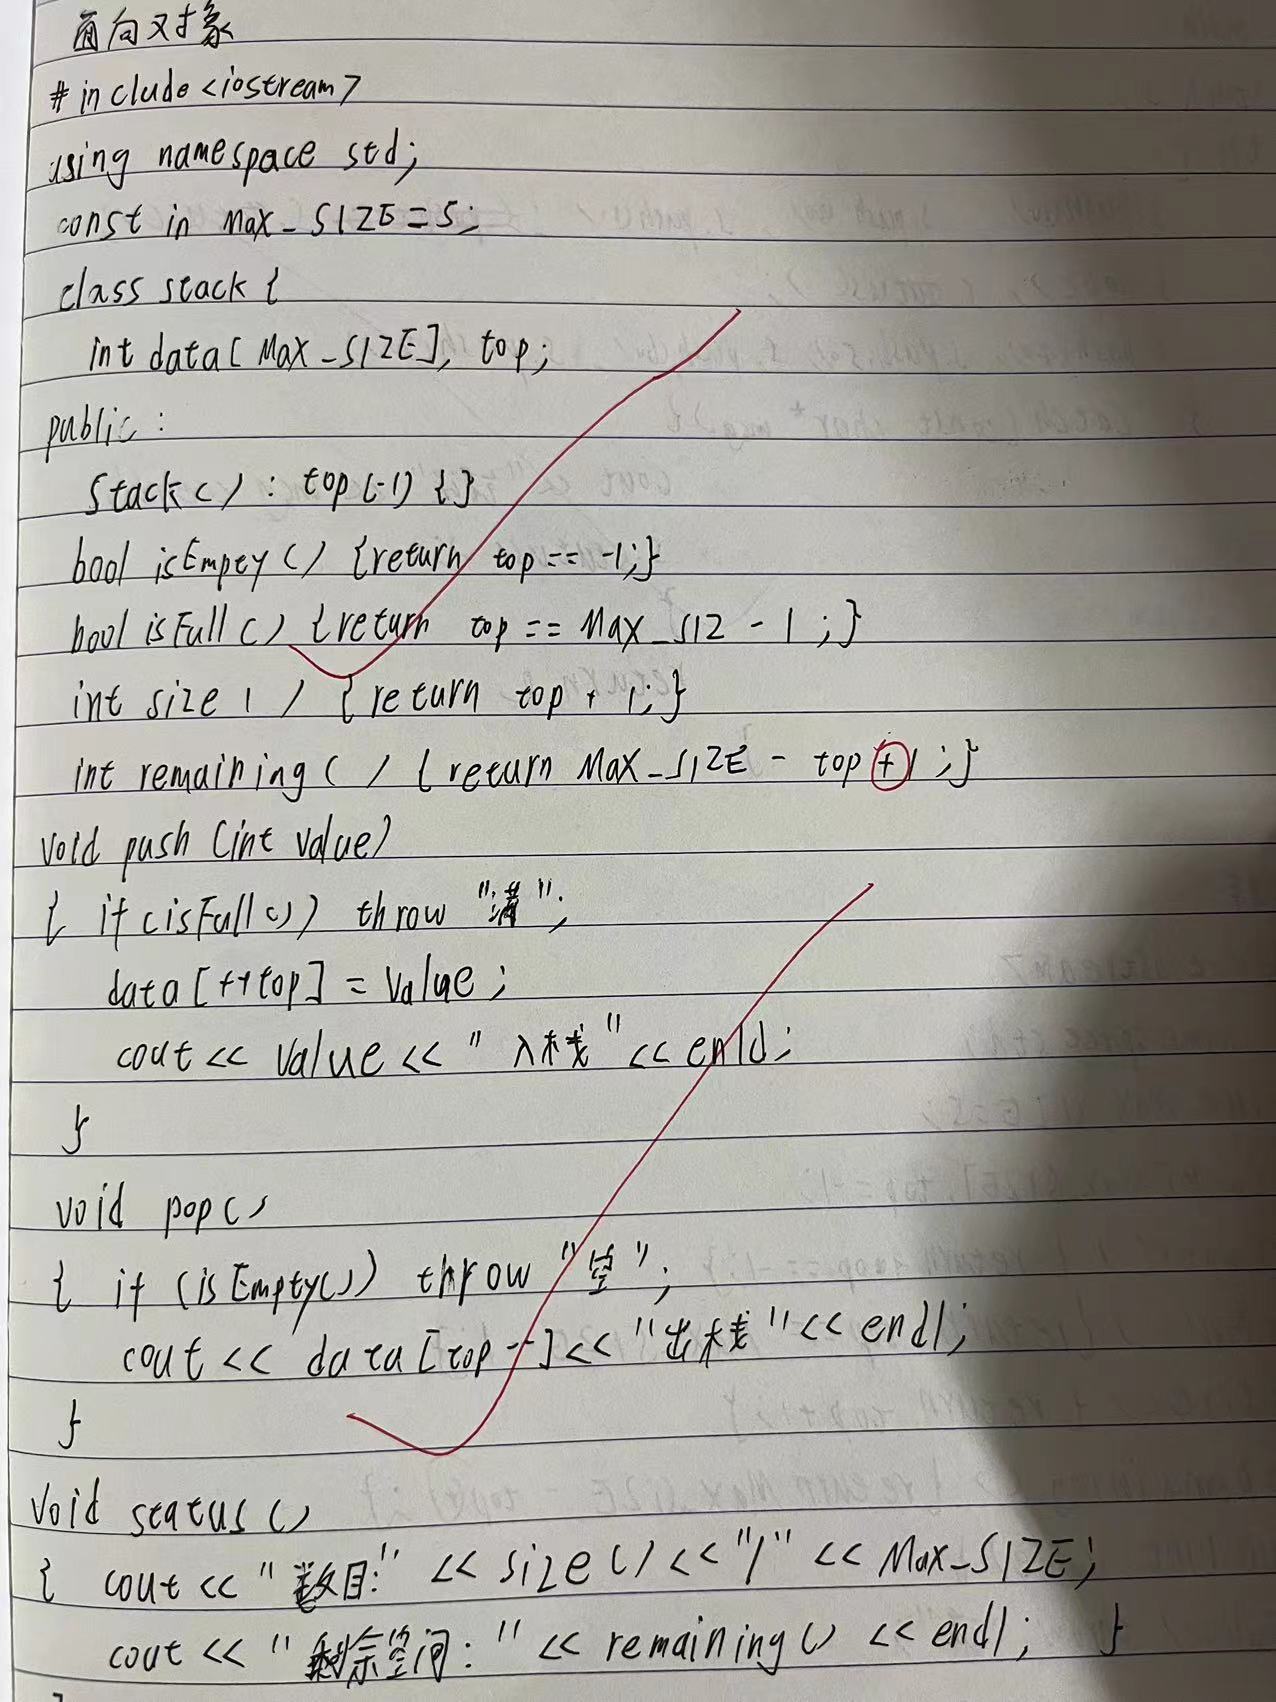 面向对象
#include<iostream>
using namespace std;
const in Max_SIZE=5;
class stack {
int data[Max_SIZE], top;
public:
Stack() : top(-1) {}
bool isEmpty() {return top == -1;}
bool isFull() {return top == Max_SIZ - 1;}
int size() {return top + 1;}
int remaining() {return Max_SIZE - top + 1;}
void push (int value)
{ if(isFull()) throw "满";
data[++top] = value;
cout << value << "入栈" << enld;
}
void pop()
{ if (isEmpty()) throw "空";
cout << data[top--] << "出栈" << endl;
}
void status()
{ cout << "数目:" << size() << "/" << Max_SIZE;
cout << "剩余空间:" << remaining() << endl; }